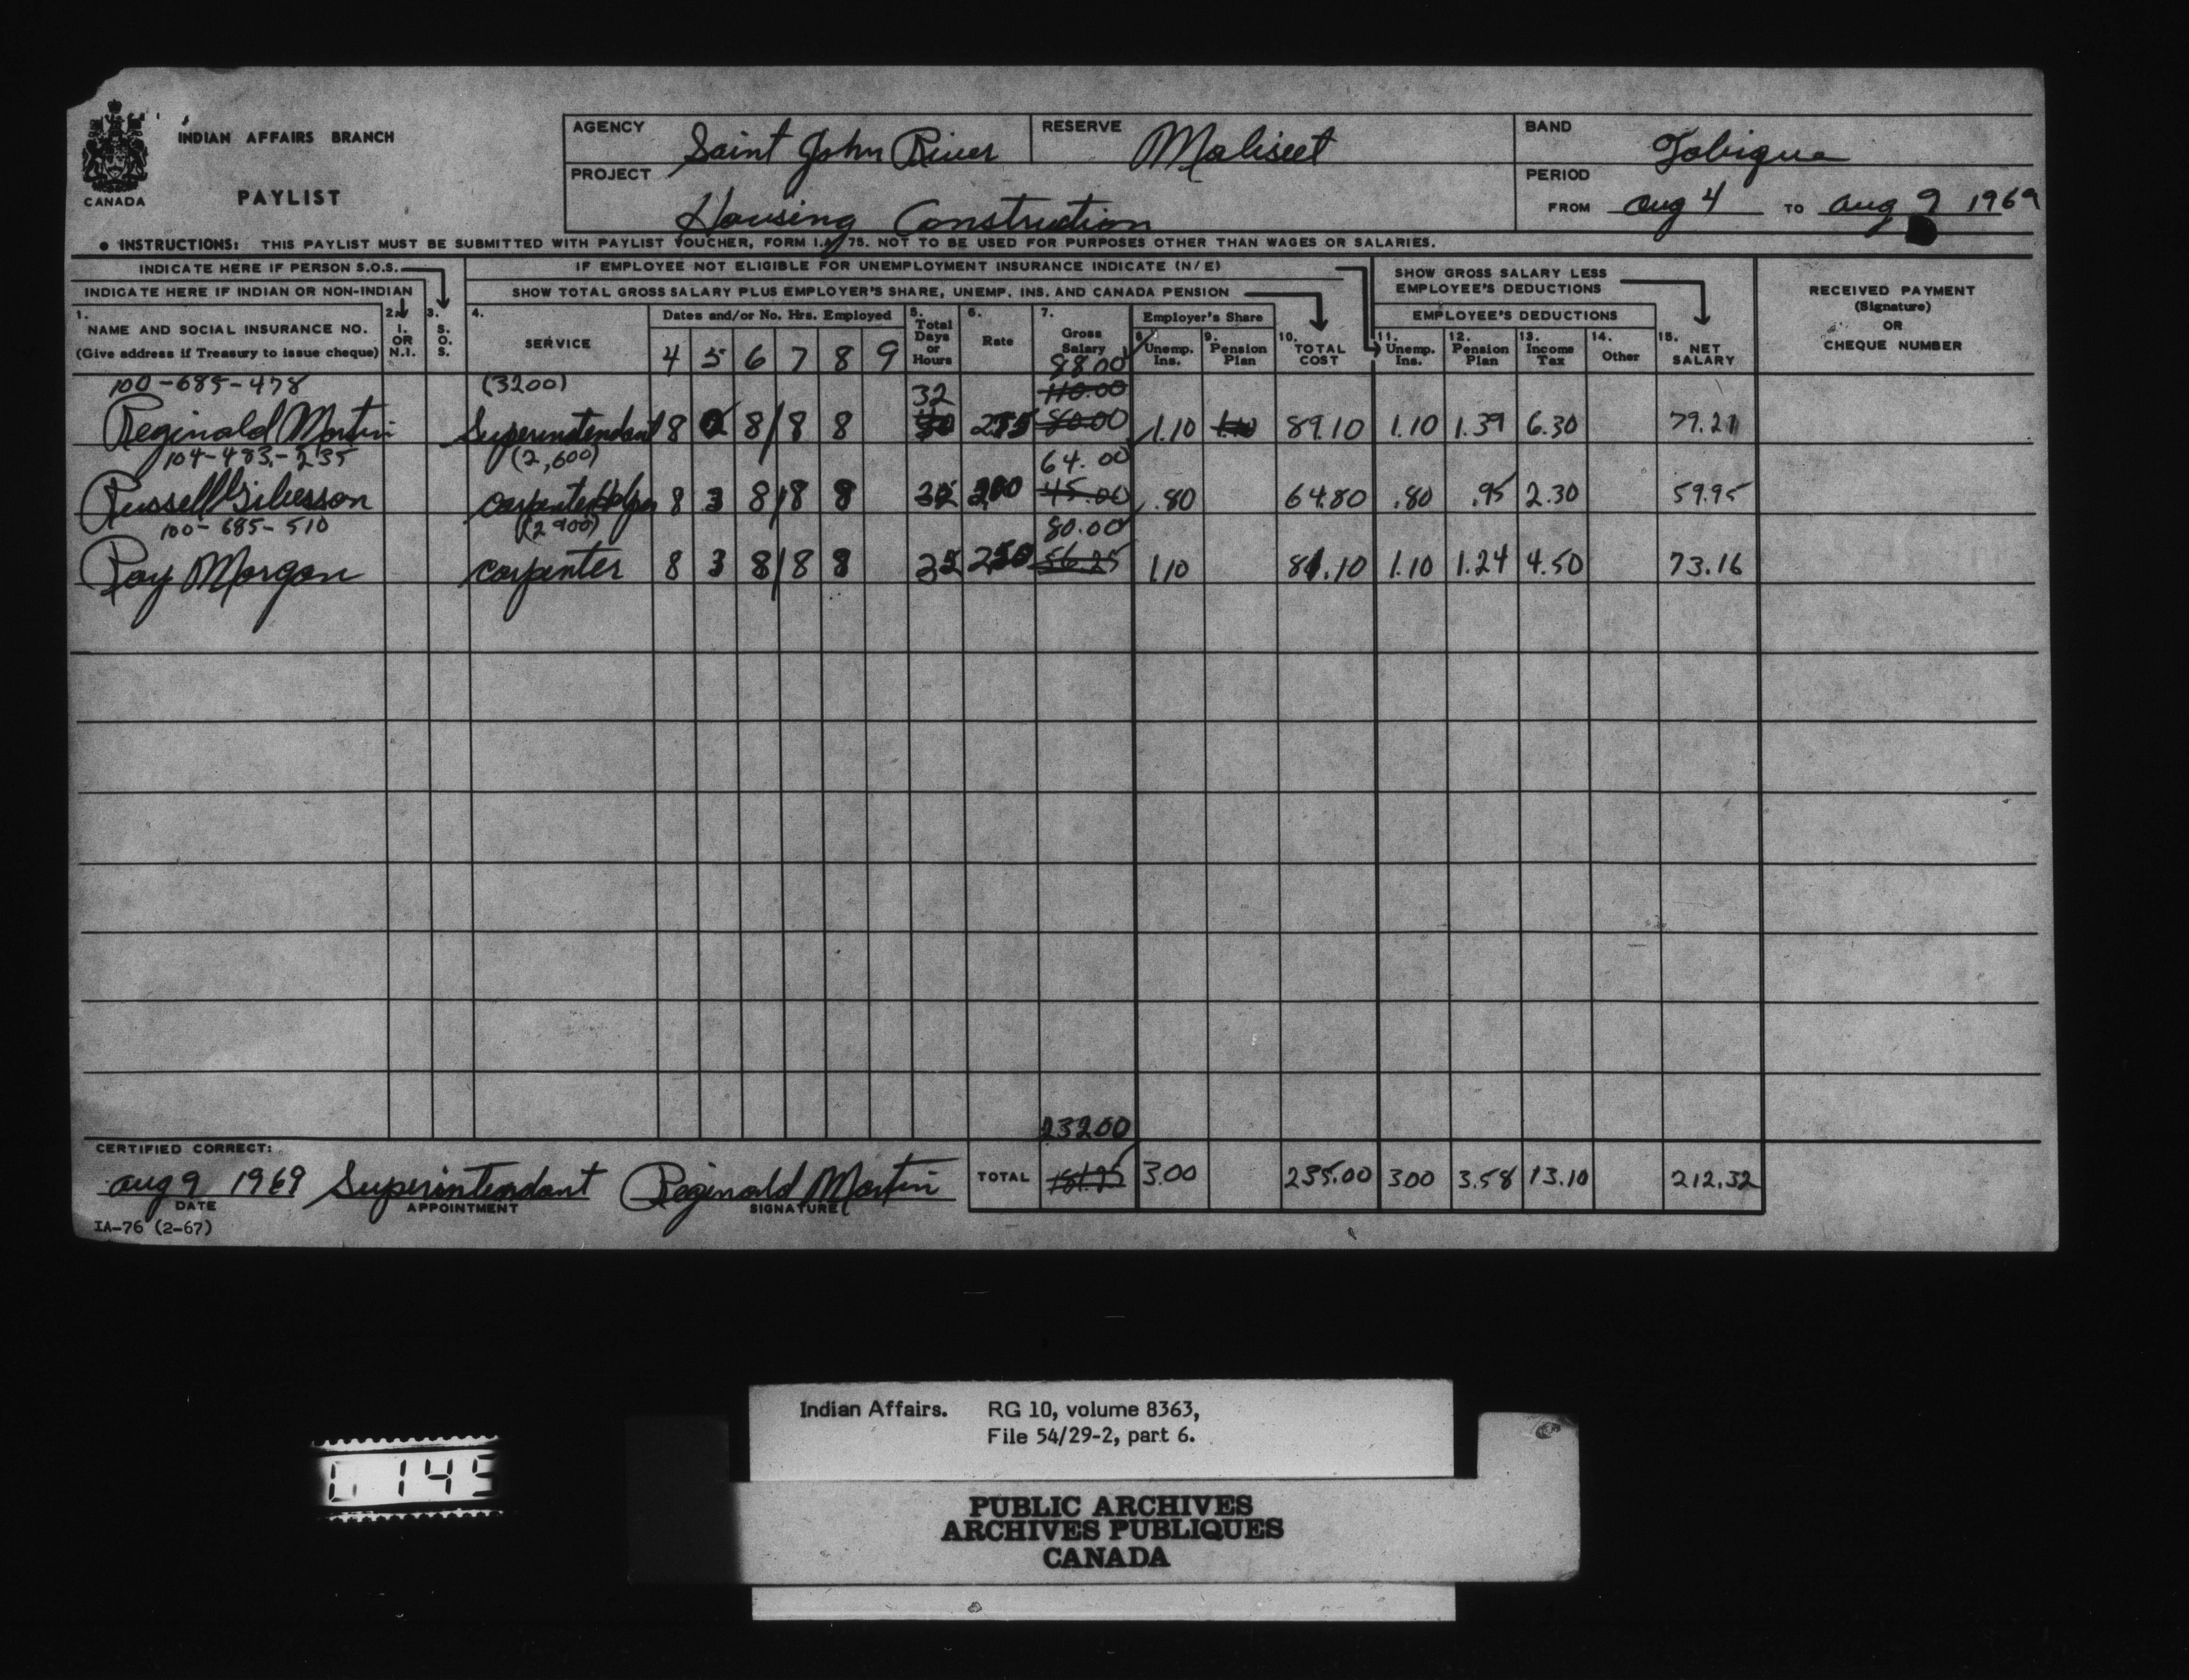 INDIAN AFFAIRS BRANCH
CANADA
PAYLIST
AGENCY Saint John River RESERVE Maliseet BAND Tobique
PROJECT Housing Construction PERIOD FROM Aug 4 TO Aug 9 1969
• INSTRUCTIONS: THIS PAYLIST MUST BE SUBMITTED WITH PAYLIST VOUCHER, FORM I.A. 75. NOT TO BE USED FOR PURPOSES OTHER THAN WAGES OR SALARIES.
INDICATE HERE IF PERSON S.O.S.
INDICATE HERE IF INDIAN OR NON-INDIAN
IF EMPLOYEE NOT ELIGIBLE FOR UNEMPLOYMENT INSURANCE INDICATE (N/E)
SHOW TOTAL GROSS SALARY PLUS EMPLOYER'S SHARE, UNEMP. INS. AND CANADA PENSION
SHOW GROSS SALARY LESS EMPLOYEE'S DEDUCTIONS
1. NAME AND SOCIAL INSURANCE NO. (Give address if Treasury to issue cheque)
2. I. OR N.I.
3. S. O. S.
4. SERVICE
Dates and/or No. Hrs. Employed
4 5 6 7 8 9
5. Total Days or Hours
6. Rate
7. Gross Salary
Employer's Share
8. Unemp. Ins.
9. Pension Plan
10. TOTAL COST
EMPLOYEE'S DEDUCTIONS
11. Unemp. Ins.
12. Pension Plan
13. Income Tax
14. Other
15. NET SALARY
RECEIVED PAYMENT (Signature) OR CHEQUE NUMBER
100-685-478 (3200) 32 88.00 110.00
Reginald Martin Superintendant 8 8 8 8 40 275 80.00 1.10 1.10 89.10 1.10 1.39 6.30 79.21
104-483-235 (2,600) 64.00
Russell Gibesson carpenter Helper 8 3 8 8 8 32 200 45.00 .80 64.80 .80 .95 2.30 59.95
100-685-510 (2900) 80.00
Roy Morgan carpenter 8 3 8 8 8 32 250 56.25 1.10 81.10 1.10 1.24 4.50 73.16
232.00
CERTIFIED CORRECT:
Aug 9 1969 Superintendant Reginald Martin TOTAL 181.25 3.00 235.00 3.00 3.58 13.10 212.32
DATE APPOINTMENT SIGNATURE
IA-76 (2-67)
Indian Affairs. RG 10, volume 8363,
File 54/29-2, part 6.
145
PUBLIC ARCHIVES
ARCHIVES PUBLIQUES
CANADA